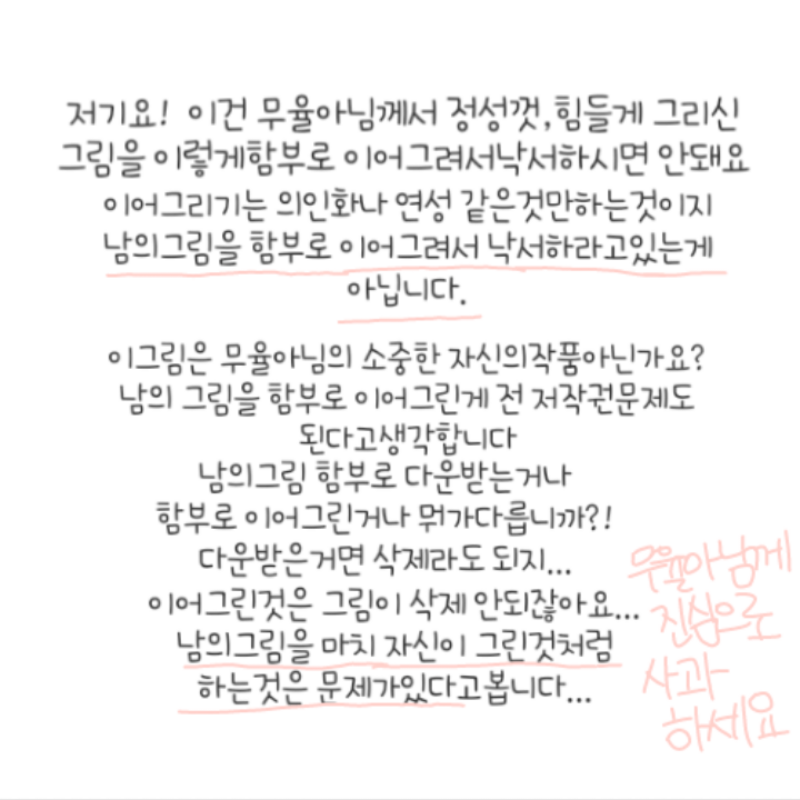 저기요! 이건 무율아님께서 정성껏,힘들게 그리신
그림을 이렇게함부로 이어그려서낙서하시면 안돼요
이어그리기는 의인화나 연성 같은것만하는것이지
남의그림을 함부로 이어그려서 낙서하라고있는게
아닙니다.
이그림은 무율아님의 소중한 자신의작품아닌가요?
남의 그림을 함부로 이어그린게 전 저작권문제도
된다고생각합니다
남의그림 함부로 다운받는거나
함부로 이어그린거나 뭐가다릅니까?!
다운받은거면 삭제라도 되지...
이어그린것은 그림이 삭제 안되잖아요...
남의그림을 마치 자신이 그린것처럼
하는것은 문제가있다고봅니다...
무율아님께
진심으로
사과
하세요